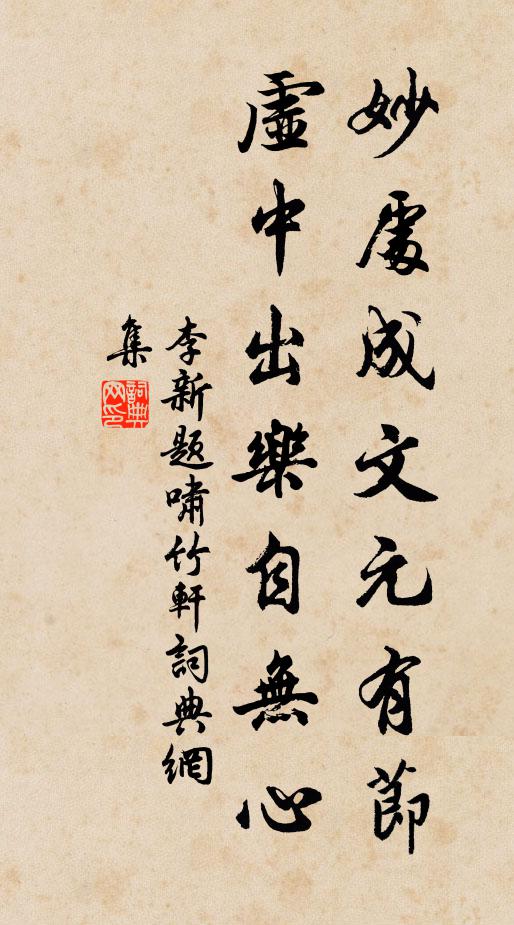 妙處成文元有節
虛中出樂自無心
李新題嘯竹軒詞典網
集
詞典網印